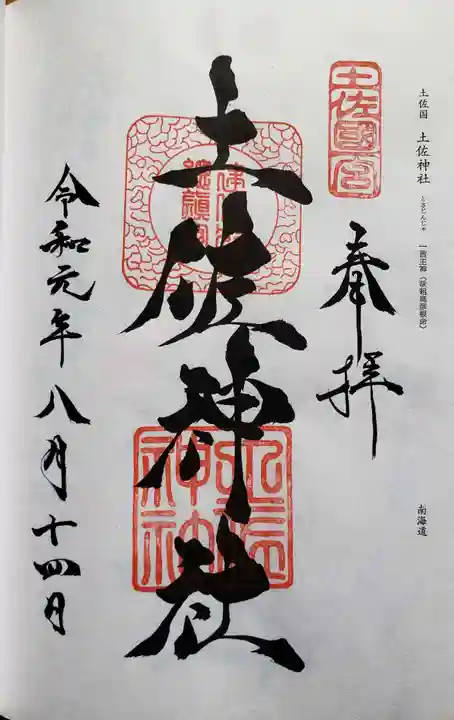 土佐国 土佐神社 とさじんじゃ 一言主神〈味鋤高彦根命〉
南海道
土佐國一宮
奉拝
土佐神社
令和元年八月十四日
土佐神社